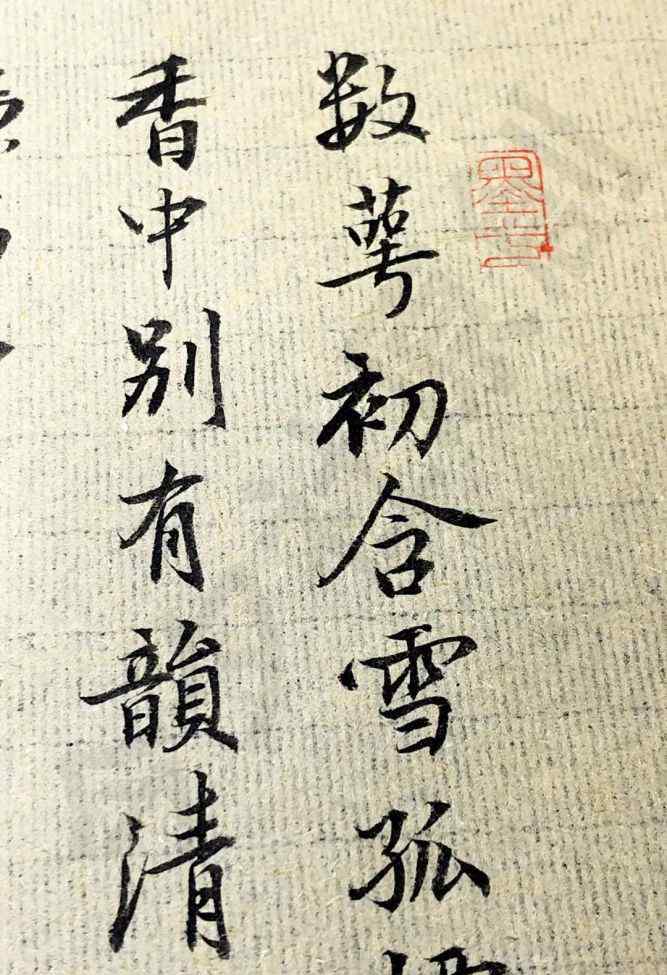 数萼初含雪孤
香中别有韻清